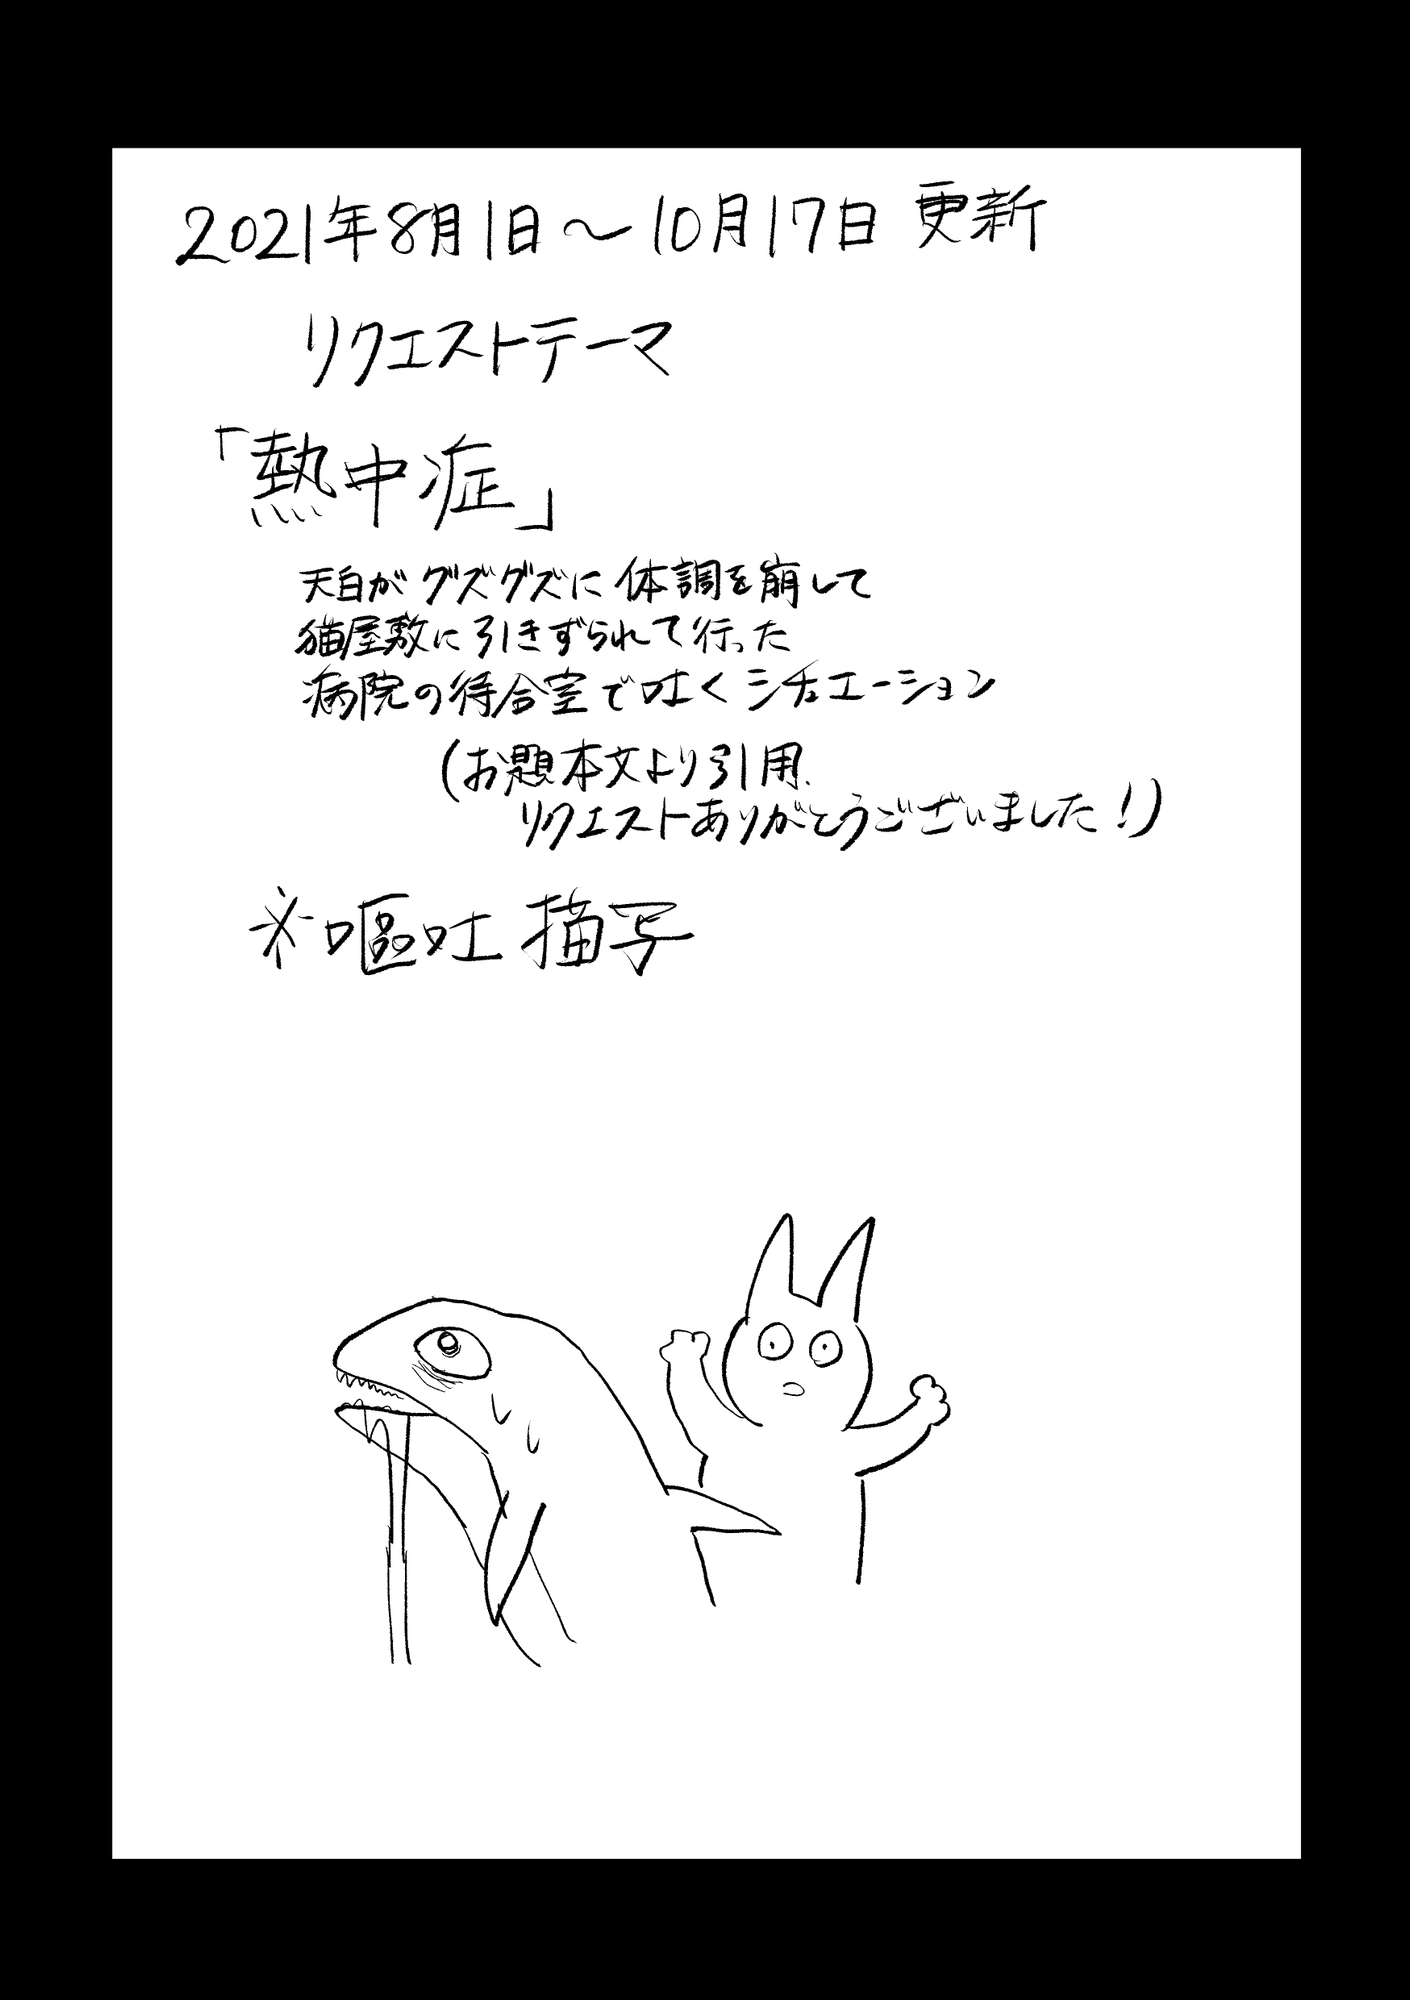 2021年8月1日～10月17日 更新
リクエストテーマ
「熱中症」
天白がグズグズに体調を崩して
猫屋敷に引きずられて行った
病院の待合室で吐くシチュエーション
(お題本文より引用.
リクエストありがとうございました!)
※嘔吐描写